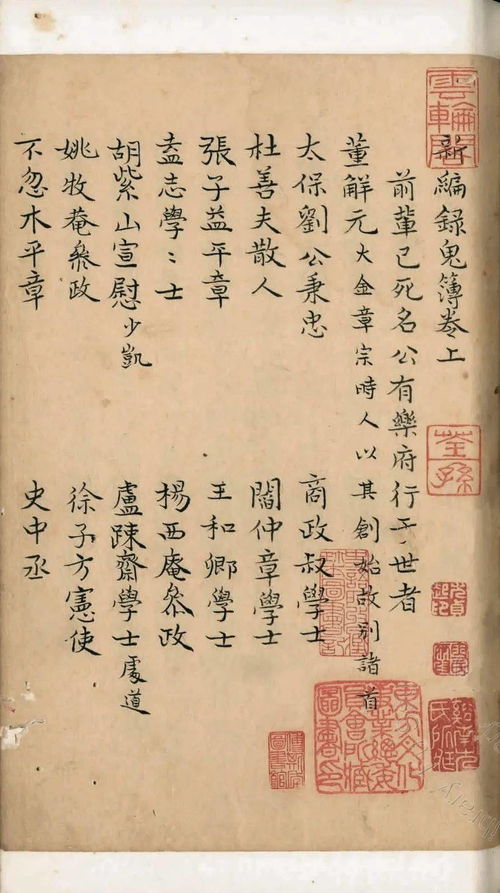 新編録鬼簿卷上
前輩已死名公有樂府行于世者
董解元大金章宗時人以其創始故列諸首
太保劉公秉忠 商政叔學士
杜善夫散人 閻仲章學士
張子益平章 王和卿學士
盍志學〻士 楊西庵叅政
胡紫山宣慰少凱 盧踈齋學士處道
姚牧菴叅政 徐子方憲使
不忽木平章 史中丞
雲輪閣
荃孫